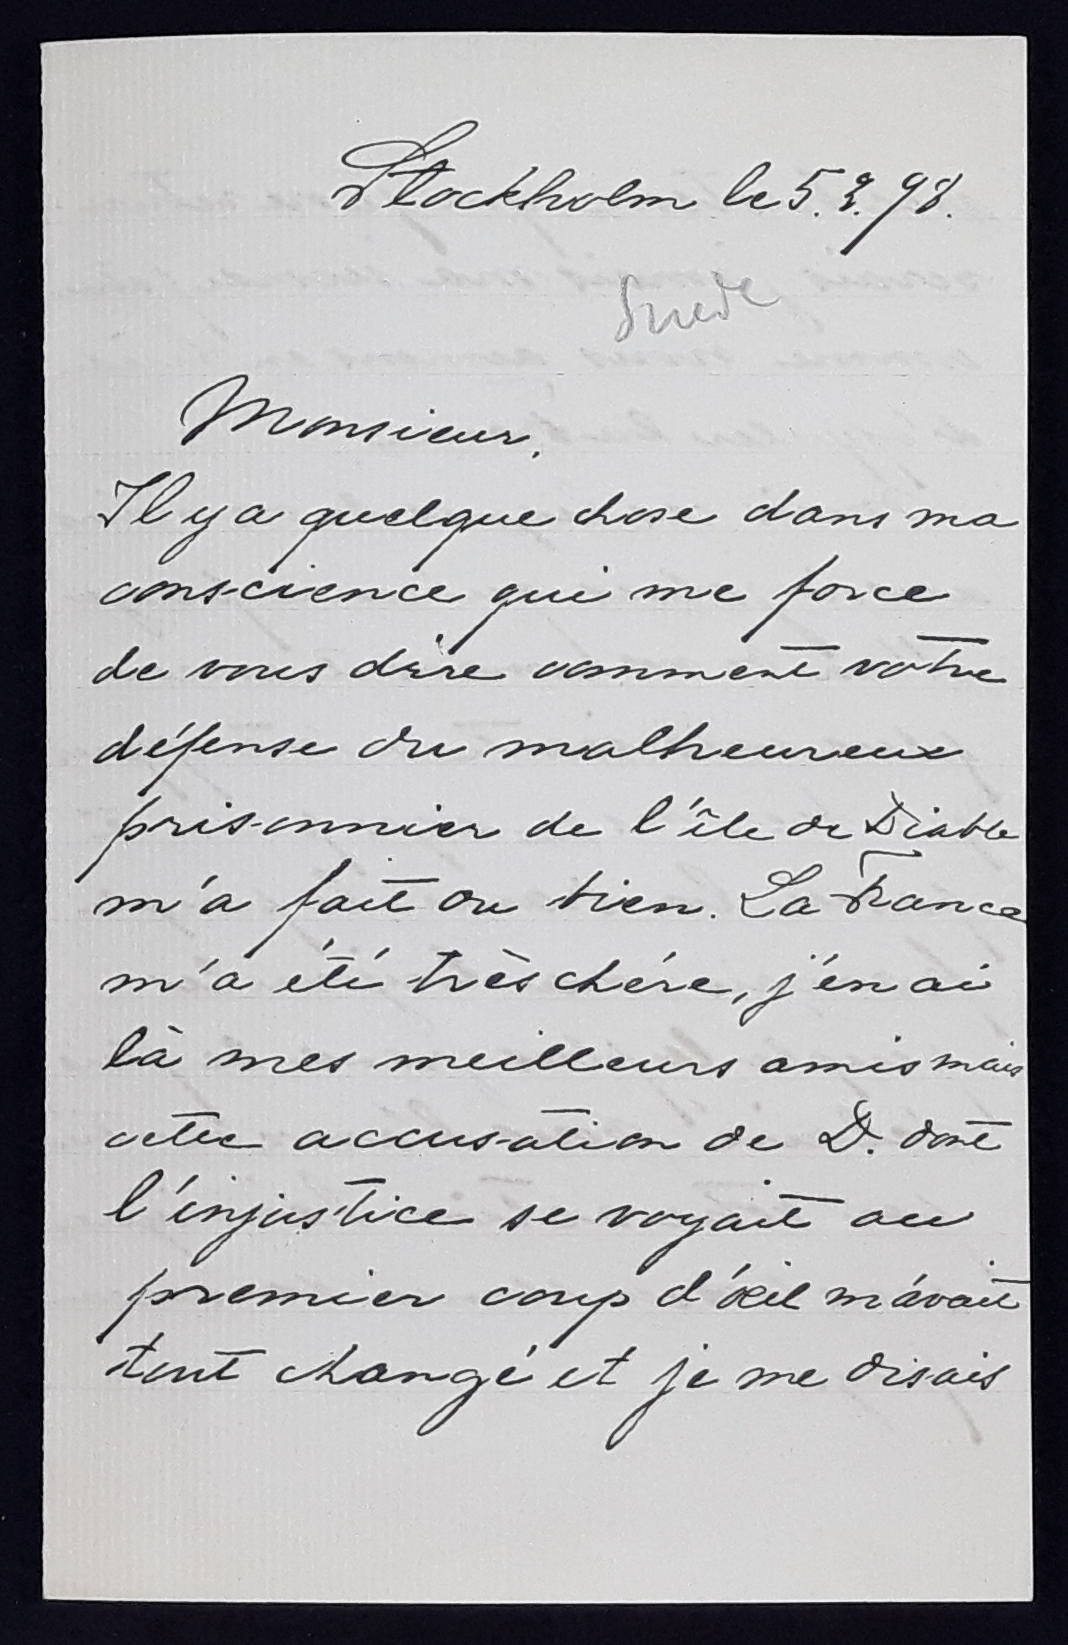 Stockholm le 5.2.98.
Suede
Monsieur.
Il y a quelque chose dans ma
conscience qui me force
de vous dire comment votre
défense du malheureux
prisonnier de l'île de Diable
m'a fait du bien. La France
m'a été très chére, j'en ai
là mes meilleurs amis mais
cette accusation de D. dont
l'injustice se voyait au
premier coup d'œil m'avait
tout changé et je me disais